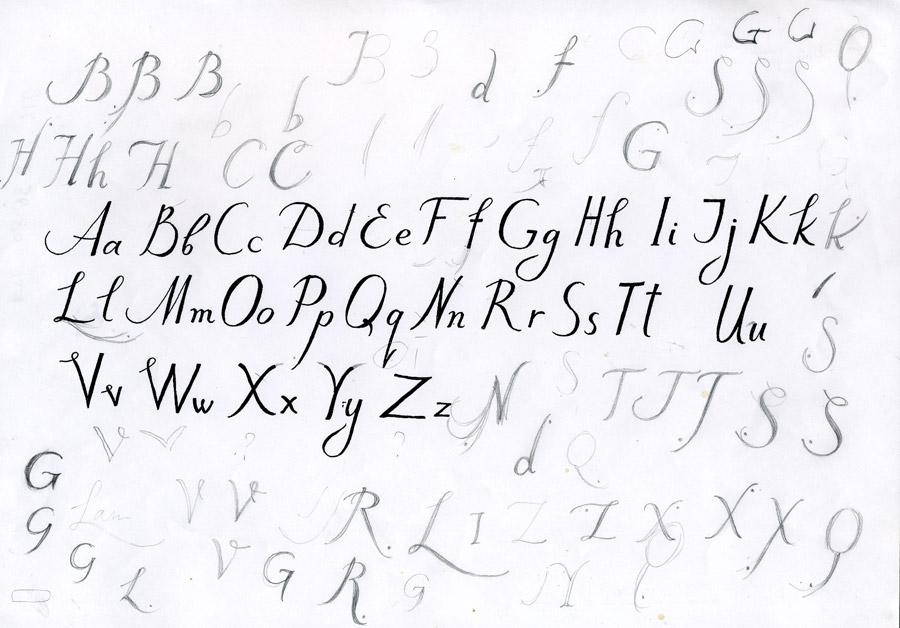 B B B b b B 3 d f C G G G S S S Q
H Hh H C C f f G
Aa Bb Cc Dd Ee Ff Gg Hh Ii Jj Kk k
Ll Mm Oo Pp Qq Nn Rr Ss Tt Uu
S
Vv Ww Xx Yy Zz N S T T T S S
V V ? ? d Q
G
G Lam V V R L I Z Z X X X Q
G L V G R G N Q